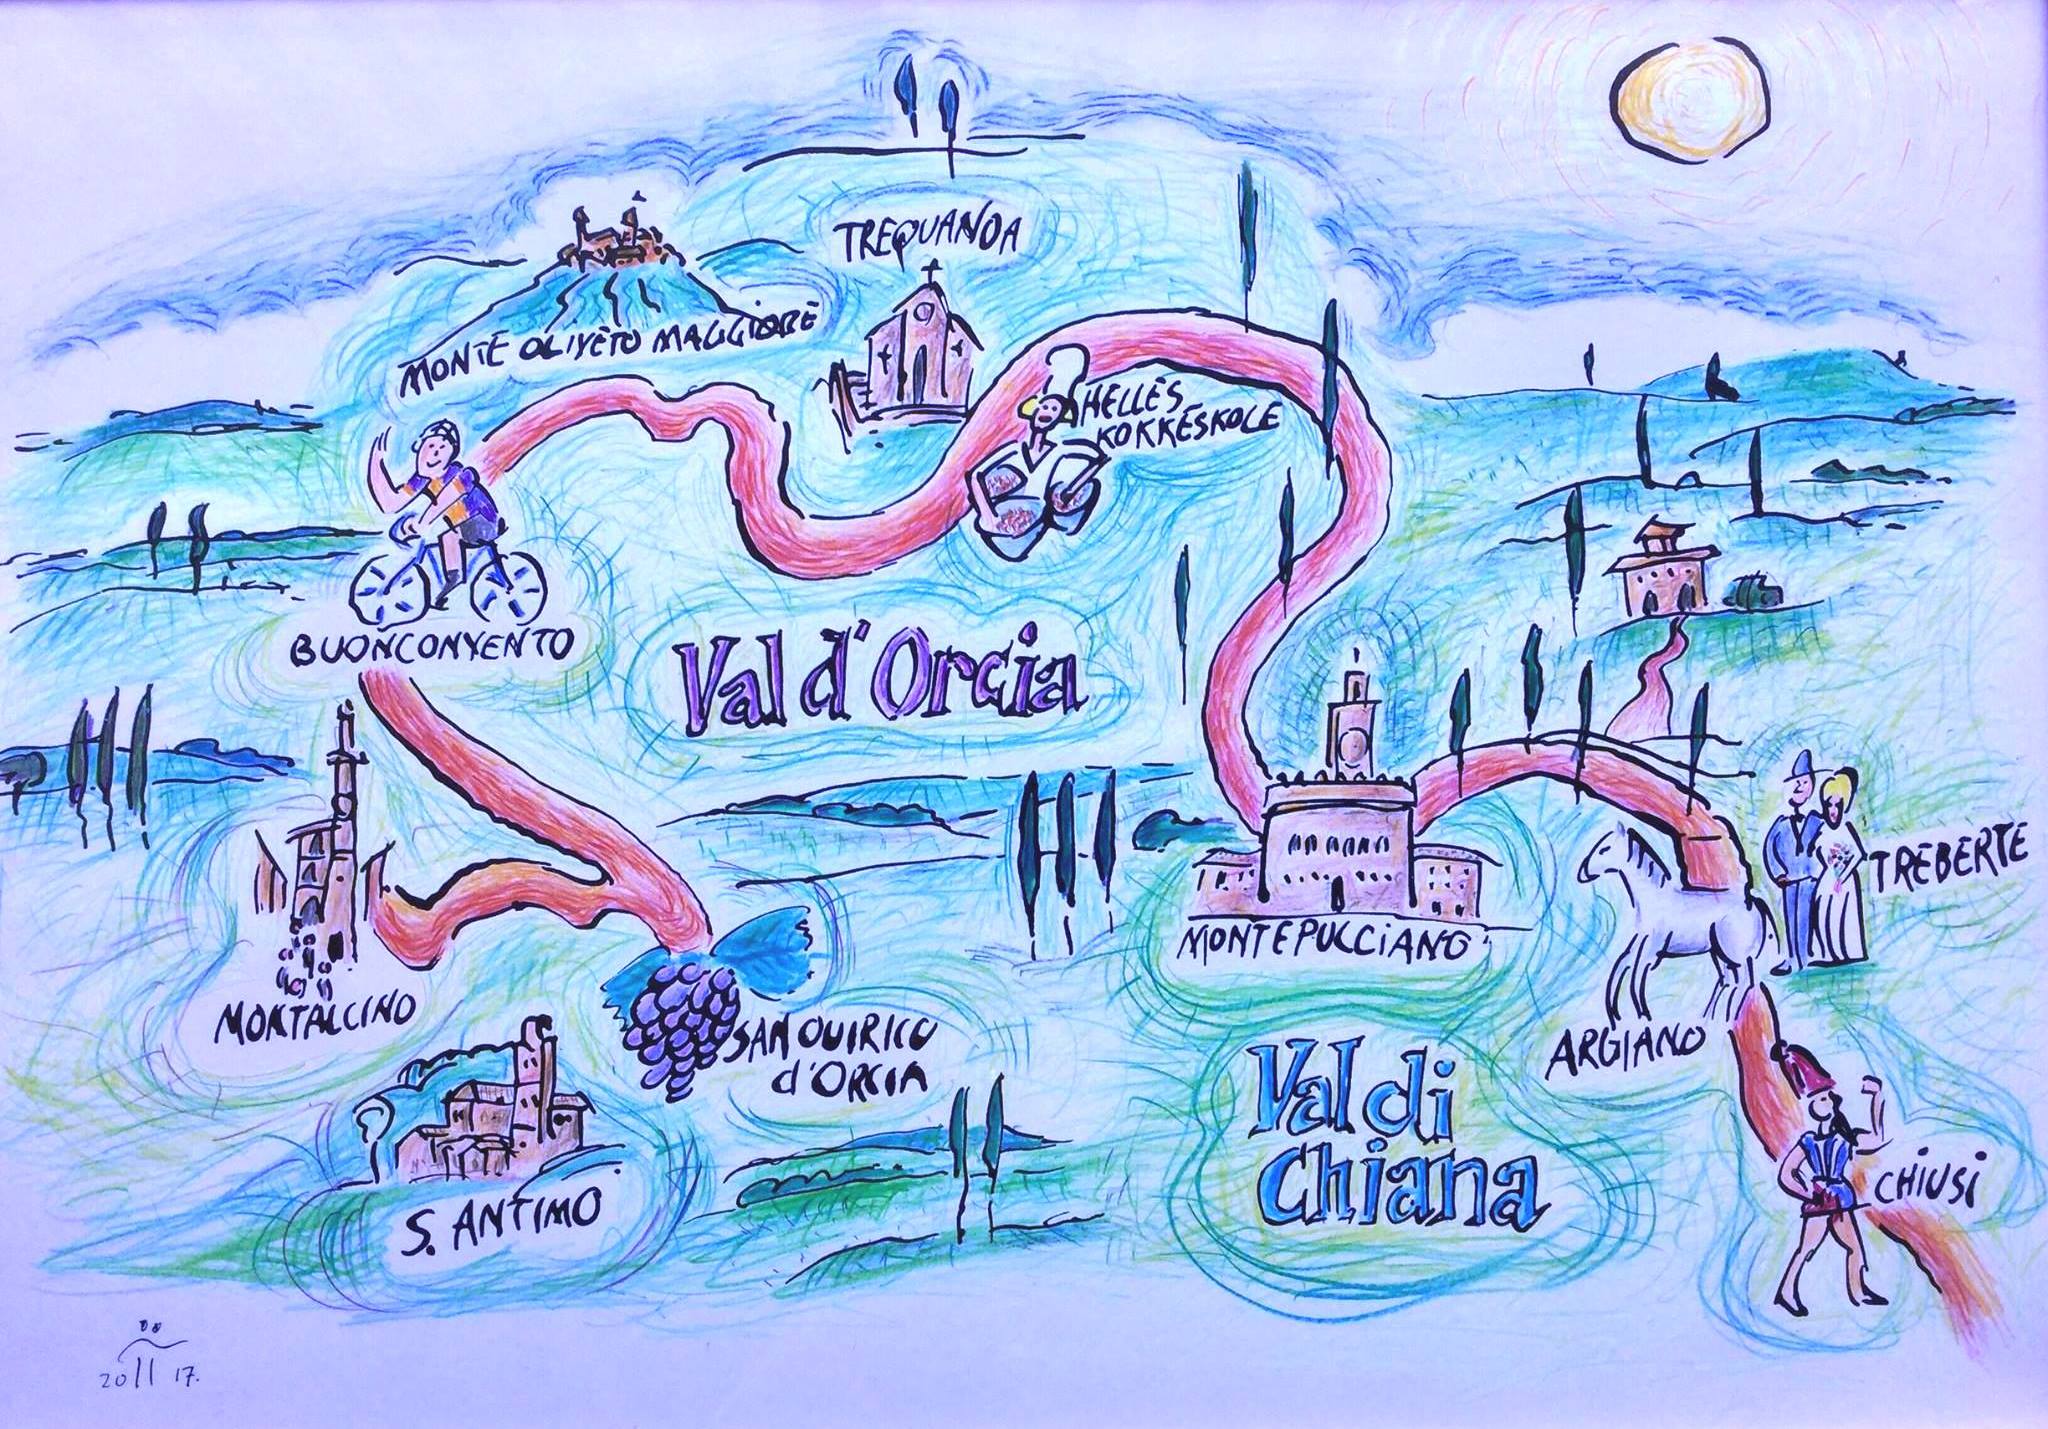 TREQUANDA
MONTE OLIVETO MAGGIORE
HELLES
KOKKESKOLE
BUONCONVENTO
Val d'Orcia
TREBERTE
MONTEPULCCIANO
MONTALCINO
SAN QUIRICO
d'ORCIA
ARGIANO
Val di
Chiana
CHIUSI
S. ANTIMO
20 17.